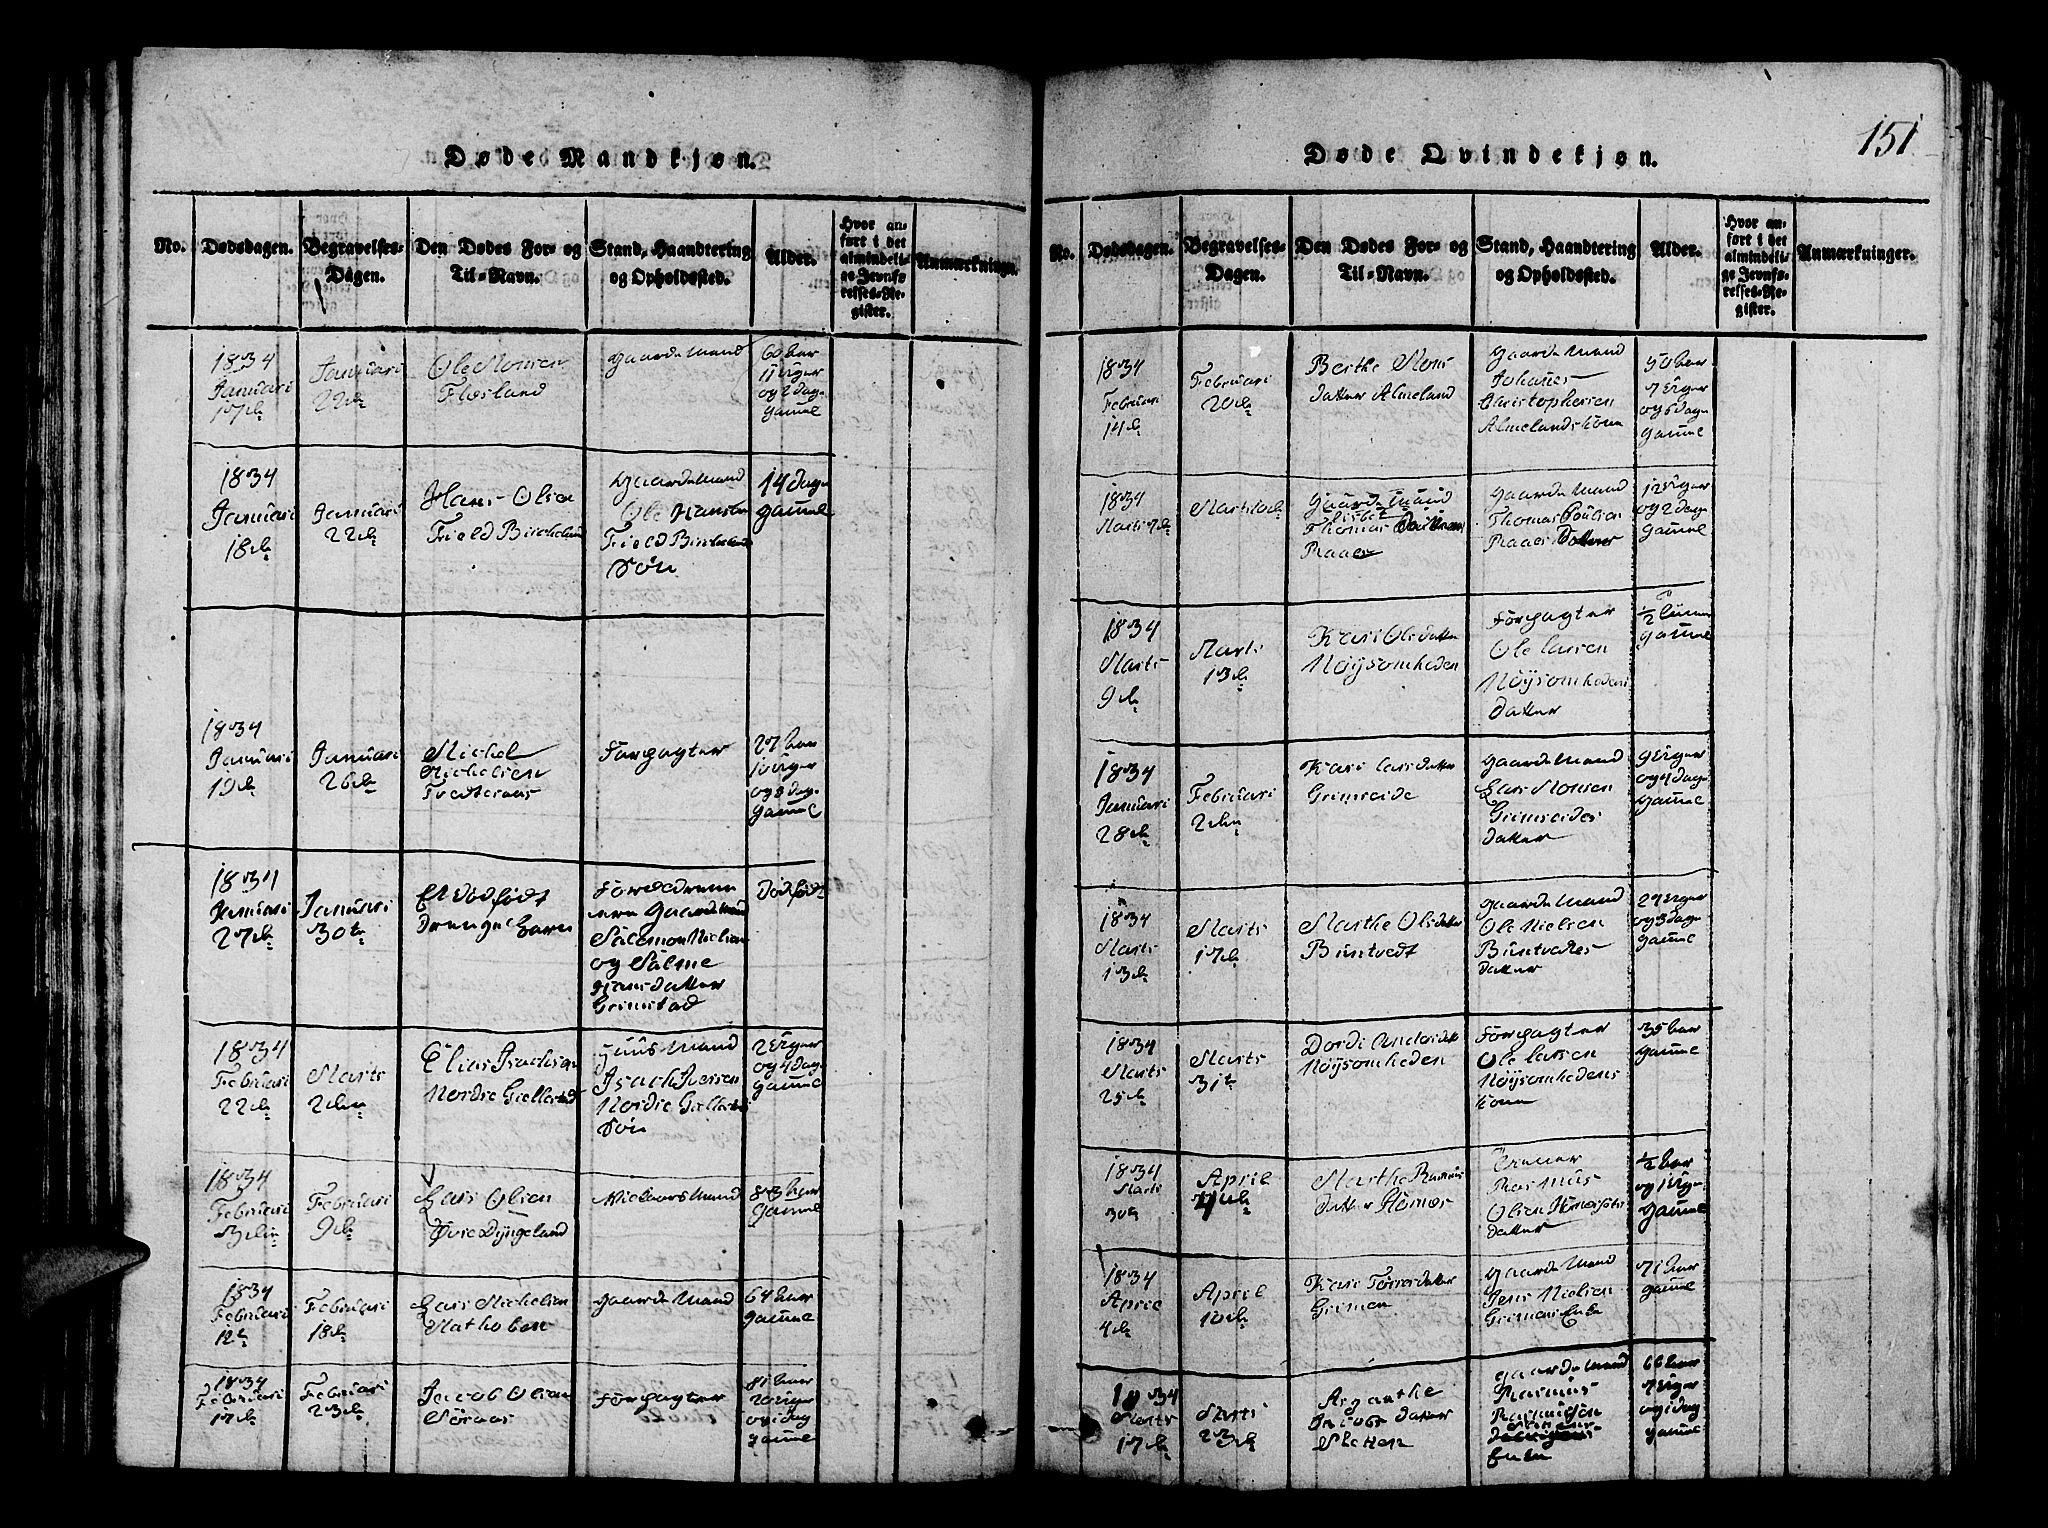 151
Døde Mandkjøn.
No.
Dødsdagen.
Begravelses-
Dagen.
Den Dødes For- og
Til-Navn.
Stand, Haandtering
og Opholdssted.
Alder.
Hvor an-
ført i det
almindeli-
ge Jevnfø-
relses-Re-
gister.
Anmærkninge.
1834
Januari
17de
Januari
22de
Ole Monsen
Flæsland
Gaardemand
60 Aar
11 Uger
og 2 dage
gamel
1834
Januari
18de
Januari
22de
Hans Olsen
Field Birkeland
Gaardemand
Ole Hansen
Field Birkeland
Søn
14 dage
gamel
1834
Januari
19de
Januari
26de
Michel
Michelsen
Tvedteraas
Forpagter
27 Aar
10 Uger
og 8 dage
gamel
1834
Januari
27de
Januari
30te
Et dødfødt
Drenge Barn
Gaardemand
Salemon Nielsen
og Salme
Hansdatter
Grimstad
Dødfødt
1834
Februari
22de
Marts
2den
Elias Isachsen
Nordre
Huusmand
Isach Iversen
Nordre
Søn
2 Uger
og 4 dage
gamel
1834
Februari
3den
Februari
9de
Lars Olsen
Øvre Dyngeland
83 Aar
gamel
1834
Februari
12te
Februari
18de
Lars Michelsen
Gaardemand
64 Aar
gamel
1834
Februari
17de
Februari
23de
Jacob Olsen
Søraas
Forpagter
81 Aar
20 Uger
og 1 dag
gamel
Døde Qvindekjøn.
No.
Dødsdagen.
Begravelses-
Dagen.
Den Dødes For- og
Til-Navn.
Stand, Haandtering
og Opholdssted.
Alder.
Hvor an-
ført i det
almindeli-
ge Jevnfø-
relses-Re-
gister.
Anmærkninger.
1834
Februari
14de
Februari
20de
Berthe Mons
datter Almeland
Gaardemand
Johanes
Christophersen
Almelands Kone
50 Aar
7 Uger
og 6 dage
gamel
1834
Marts 7de
Gaardemand
Thomas
Raaes
Gaardemand
Thomas Poulsen
Raaes Datter
12 Uger
og 2 dage
gamel
1834
Marts
9de
Marts
13de
Kari Olsdatter
Nøysomheden
Forpagter
Ole Larsen
Nøysomhedens
datter
1/2 time
gamel
1834
Januari
28de
Februari
2den
Kari Larsdatter
Grimseide
Gaardemand
Lars Monsen
Grimseides
datter
9 Uger
og 4 dage
gamel
1834
Marts
13de
Marts
17de
Marthe Olsdatter
Bøntvedt
Gaardemand
Ole Nielsen
datter
27 Uger
og 3 dage
gamel
1834
Marts
25de
Marts
31te
Dordi Andersdatter
Nøysomheden
Forpagter
Ole Larsen
Nøysomhedens
Kone
35 Aar
gamel
1834
Marts
30te
April
Marthe Rasmus
datter
Rasmus
Olsen
datter
1/2 Aar
og 1 Uge
gamel
1834
April
4de
April
10de
Kari
Grimen
Gaardemand
Jens Nielsen
Grimens Enke
71 Aar
gamel
1834
Marts
17de
Marts
23de
Aganthe
Jacobs datter
Sletten
Gaardemand
Rasmus
Rasmusen
Enke
66 Aar
7 Uger
og 1 dag
gamel